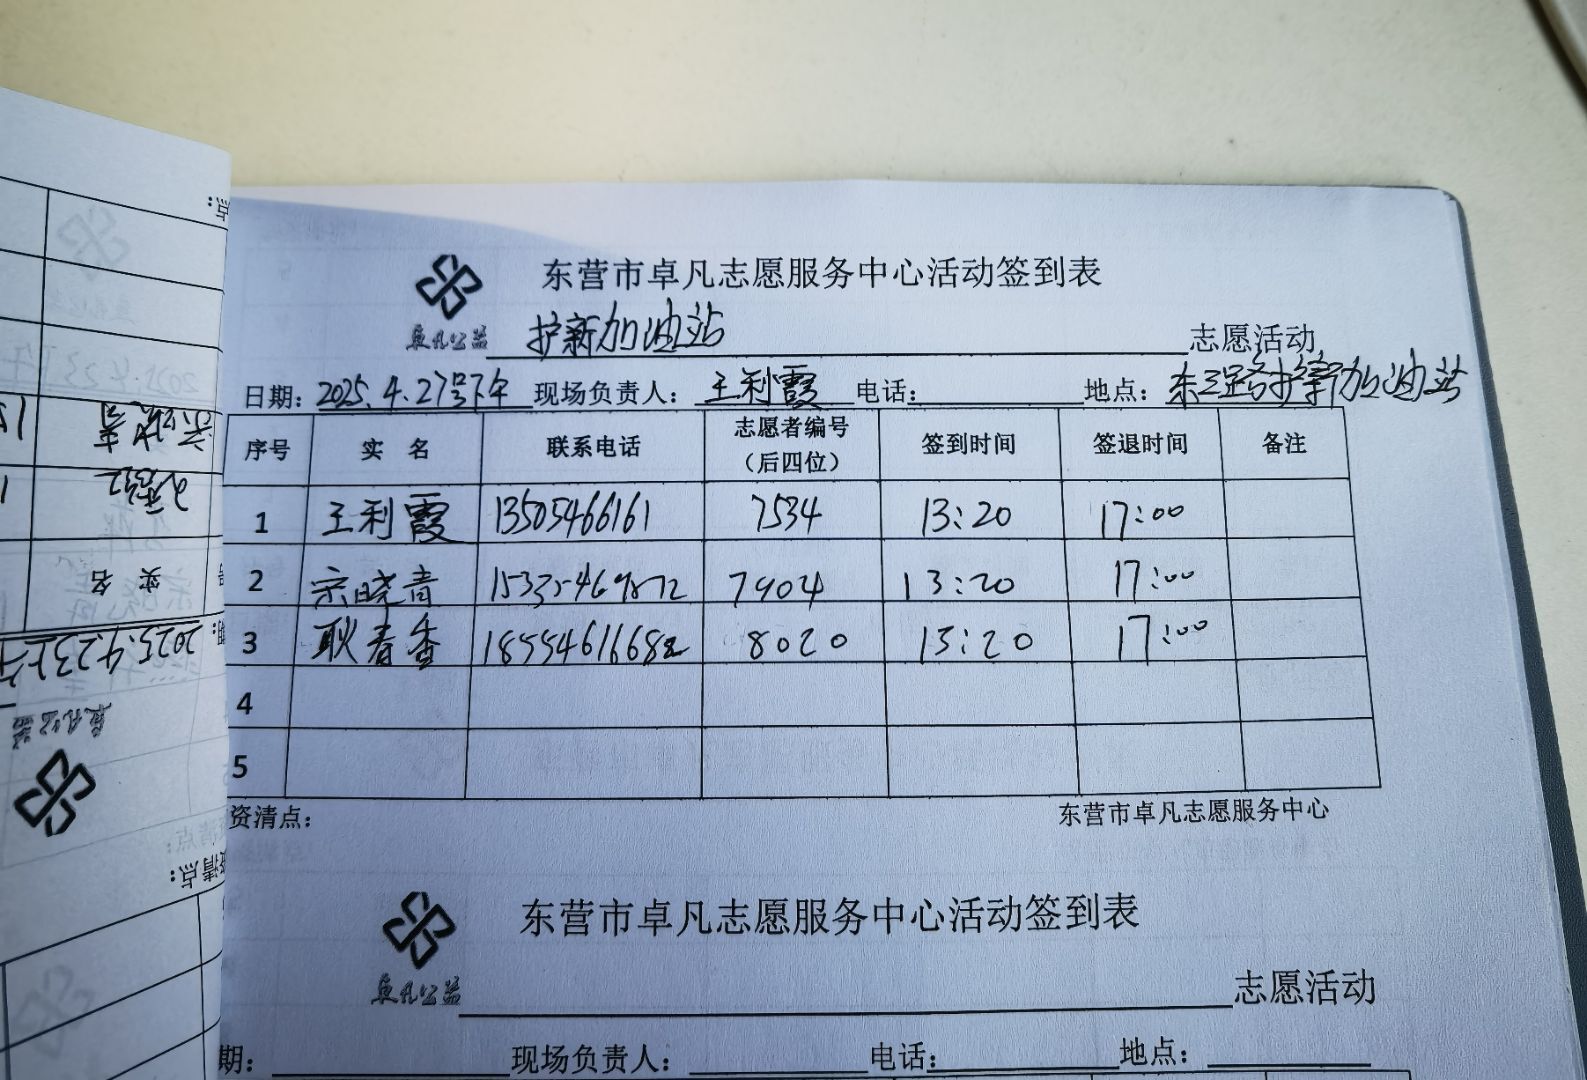 东营市卓凡志愿服务中心活动签到表
卓凡公益 护新加油站 志愿活动
日期：2025.4.27号下午 现场负责人：王利霞 电话： 地点：东三路护新加油站
序号 实名 联系电话 志愿者编号（后四位） 签到时间 签退时间 备注
1 王利霞 13505466161 7534 13:20 17:00
2 宋晓青 7904 13:20 17:00
3 耿春香 18554616682 8020 13:20 17:00
4
5
资清点： 东营市卓凡志愿服务中心
东营市卓凡志愿服务中心活动签到表
卓凡公益 志愿活动
期： 现场负责人： 电话： 地点：
点：
实名
2025.4.23上午
卓凡公益
资清点：